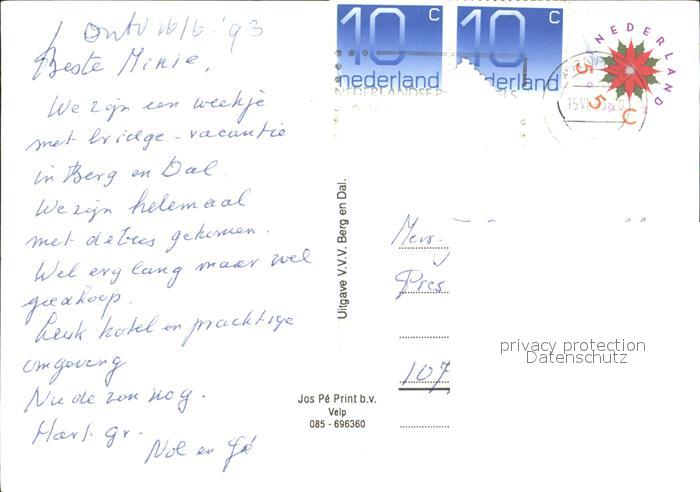 Ontv 16/6 '93
Beste Minie,
We zijn een weekje
met bridge-vacantie
in Berg en Dal.
We zijn helemaal
met de bus gekomen.
Wel erg lang maar wel
goedkoop.
Leuk hotel en prachtige
omgeving
Nu de zon nog.
Hart. gr.
Nol en Gé
10 c
nederland
10 c
nederland
NEDERLAND
55 c
Uitgave V.V.V. Berg en Dal.
Mevr.
Pres
107
privacy protection
Datenschutz
Jos Pé Print b.v.
Velp
085 - 696360